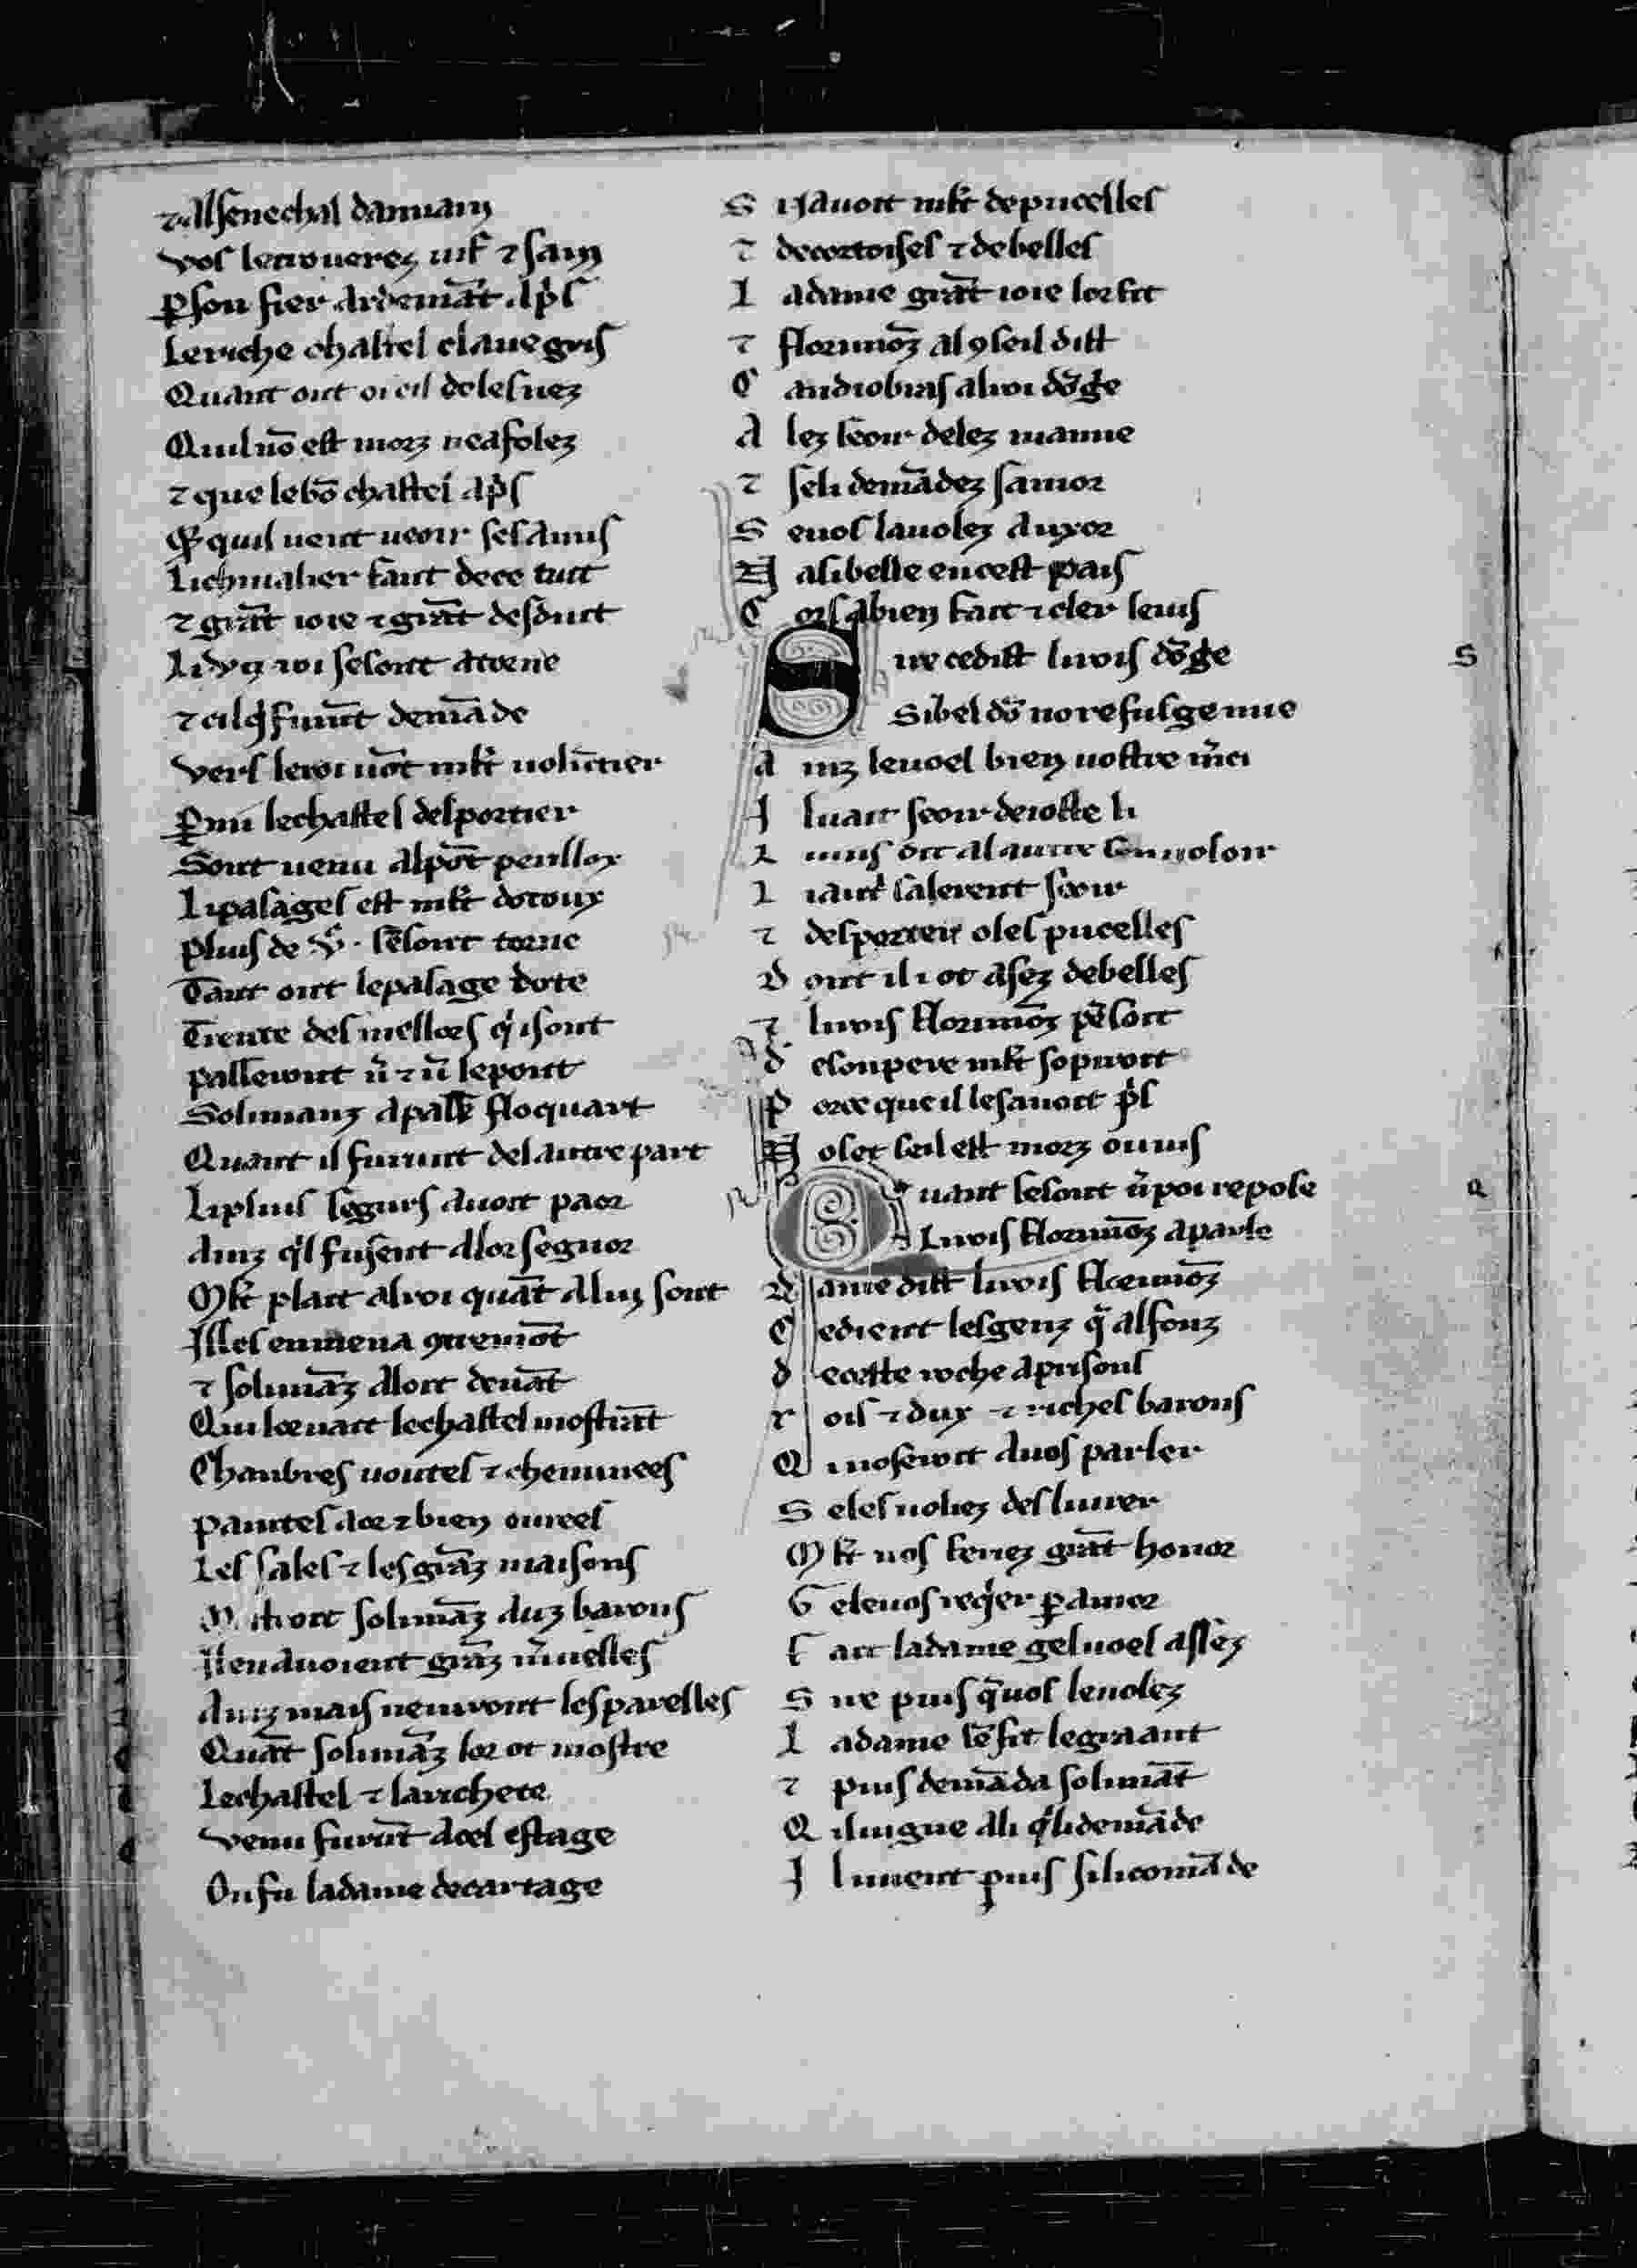 ⁊ al senechal damiain
vos le trouerez uif ⁊ sain
ꝑ son fier ardemāt apͥs
Le riche chastel claueguis
Quant ont oi cil de les nez
Quil nō est morz ne afolez
⁊ que le bō chastel apͥs
Et quil uient ueoir ses amis
Li chiualier fant de ce tuit
⁊ grāt ioie ⁊ grāt desduit
Li dui roi se sont atorne
⁊ cil qͥ furūt demāde
vers le roi uōt mlt uolūtier
ꝑmi le chastel del portier
Sont uenu al pōt perillox
Li pasages est mlt dotoux
Plus de sē sont torne
Tant ont le pasage dote
Trente des mellors qͥ i sont
Passeront ū ⁊ ū le pont
Solimanz a passe floquart
Quant il furunt del autre part
Li plus segurs auoit paor
Ainz qͥl fusēt a lor segnor
Mlt plait al roi quāt a lui sont
Illes enmena ꝯtremōt
⁊ solimāz aloit deuāt
Qui lor uait le chastel mostrāt
Chanbres uoutes ⁊ cheminees
Paintes a or ⁊ bien ourees
Les sales ⁊ les grāz maisons
Mostroit solimāz auz barons
Il en auoient grāz m̄uelles
Ainz mais ne uiront les parelles
Quāt solimāz lor ot mostre
Le chastel ⁊ la richete
venu furūt a cel estage
On fu la dame de cartage
S i auoit mlt de pucelles
⁊ de cortoises ⁊ de belles
L a dame grāt ioie lor fit
⁊ florimōz al ꝯseil dist
C andiobras al roi dōg̃e
A lez seoir delez mamie
⁊ se li demādez samor
S e uos la uolez a uxor
M a si belle en cest pais
C ors a bien fait ⁊ cler le uis
S ire ce dist li rois dōg̃e
Si bel dō no refuse ge mie
A inz le uoel bien uostre m̄ci
I l uait seoir de ioste li
L i uns dit al autre son uoloir
L i autͥ salerent seoir
⁊ desporter o les pucelles
D ont il i ot asez de belles
⁊ li rois florimōz pēsoit
d e son pere mlt sopiroit
P or ce que il le sauoit pͥs
M os ne set seil est morz ou uis
Q uant se sont ū poi repose
Li rois florimōz a parle
D ame dist li rois florimōz
C e dient les genz qͣ alfonz
d e ceste roche a prisons
r ois ⁊ dux ⁊ riches barons
Q mosewit a uos parler
S e les uoliez desliurer
M lt nos feriez grāt honor
G e le uos reqͥer ꝑ amor
f ait la dame ge l uoel assez
S ire puis qͣ uos le uolez
L a dame sē fit le graant
⁊ puis demāda solimāt
Q il uigne a li qͥ li demāde
I l uient puis si li comāde
S
Q